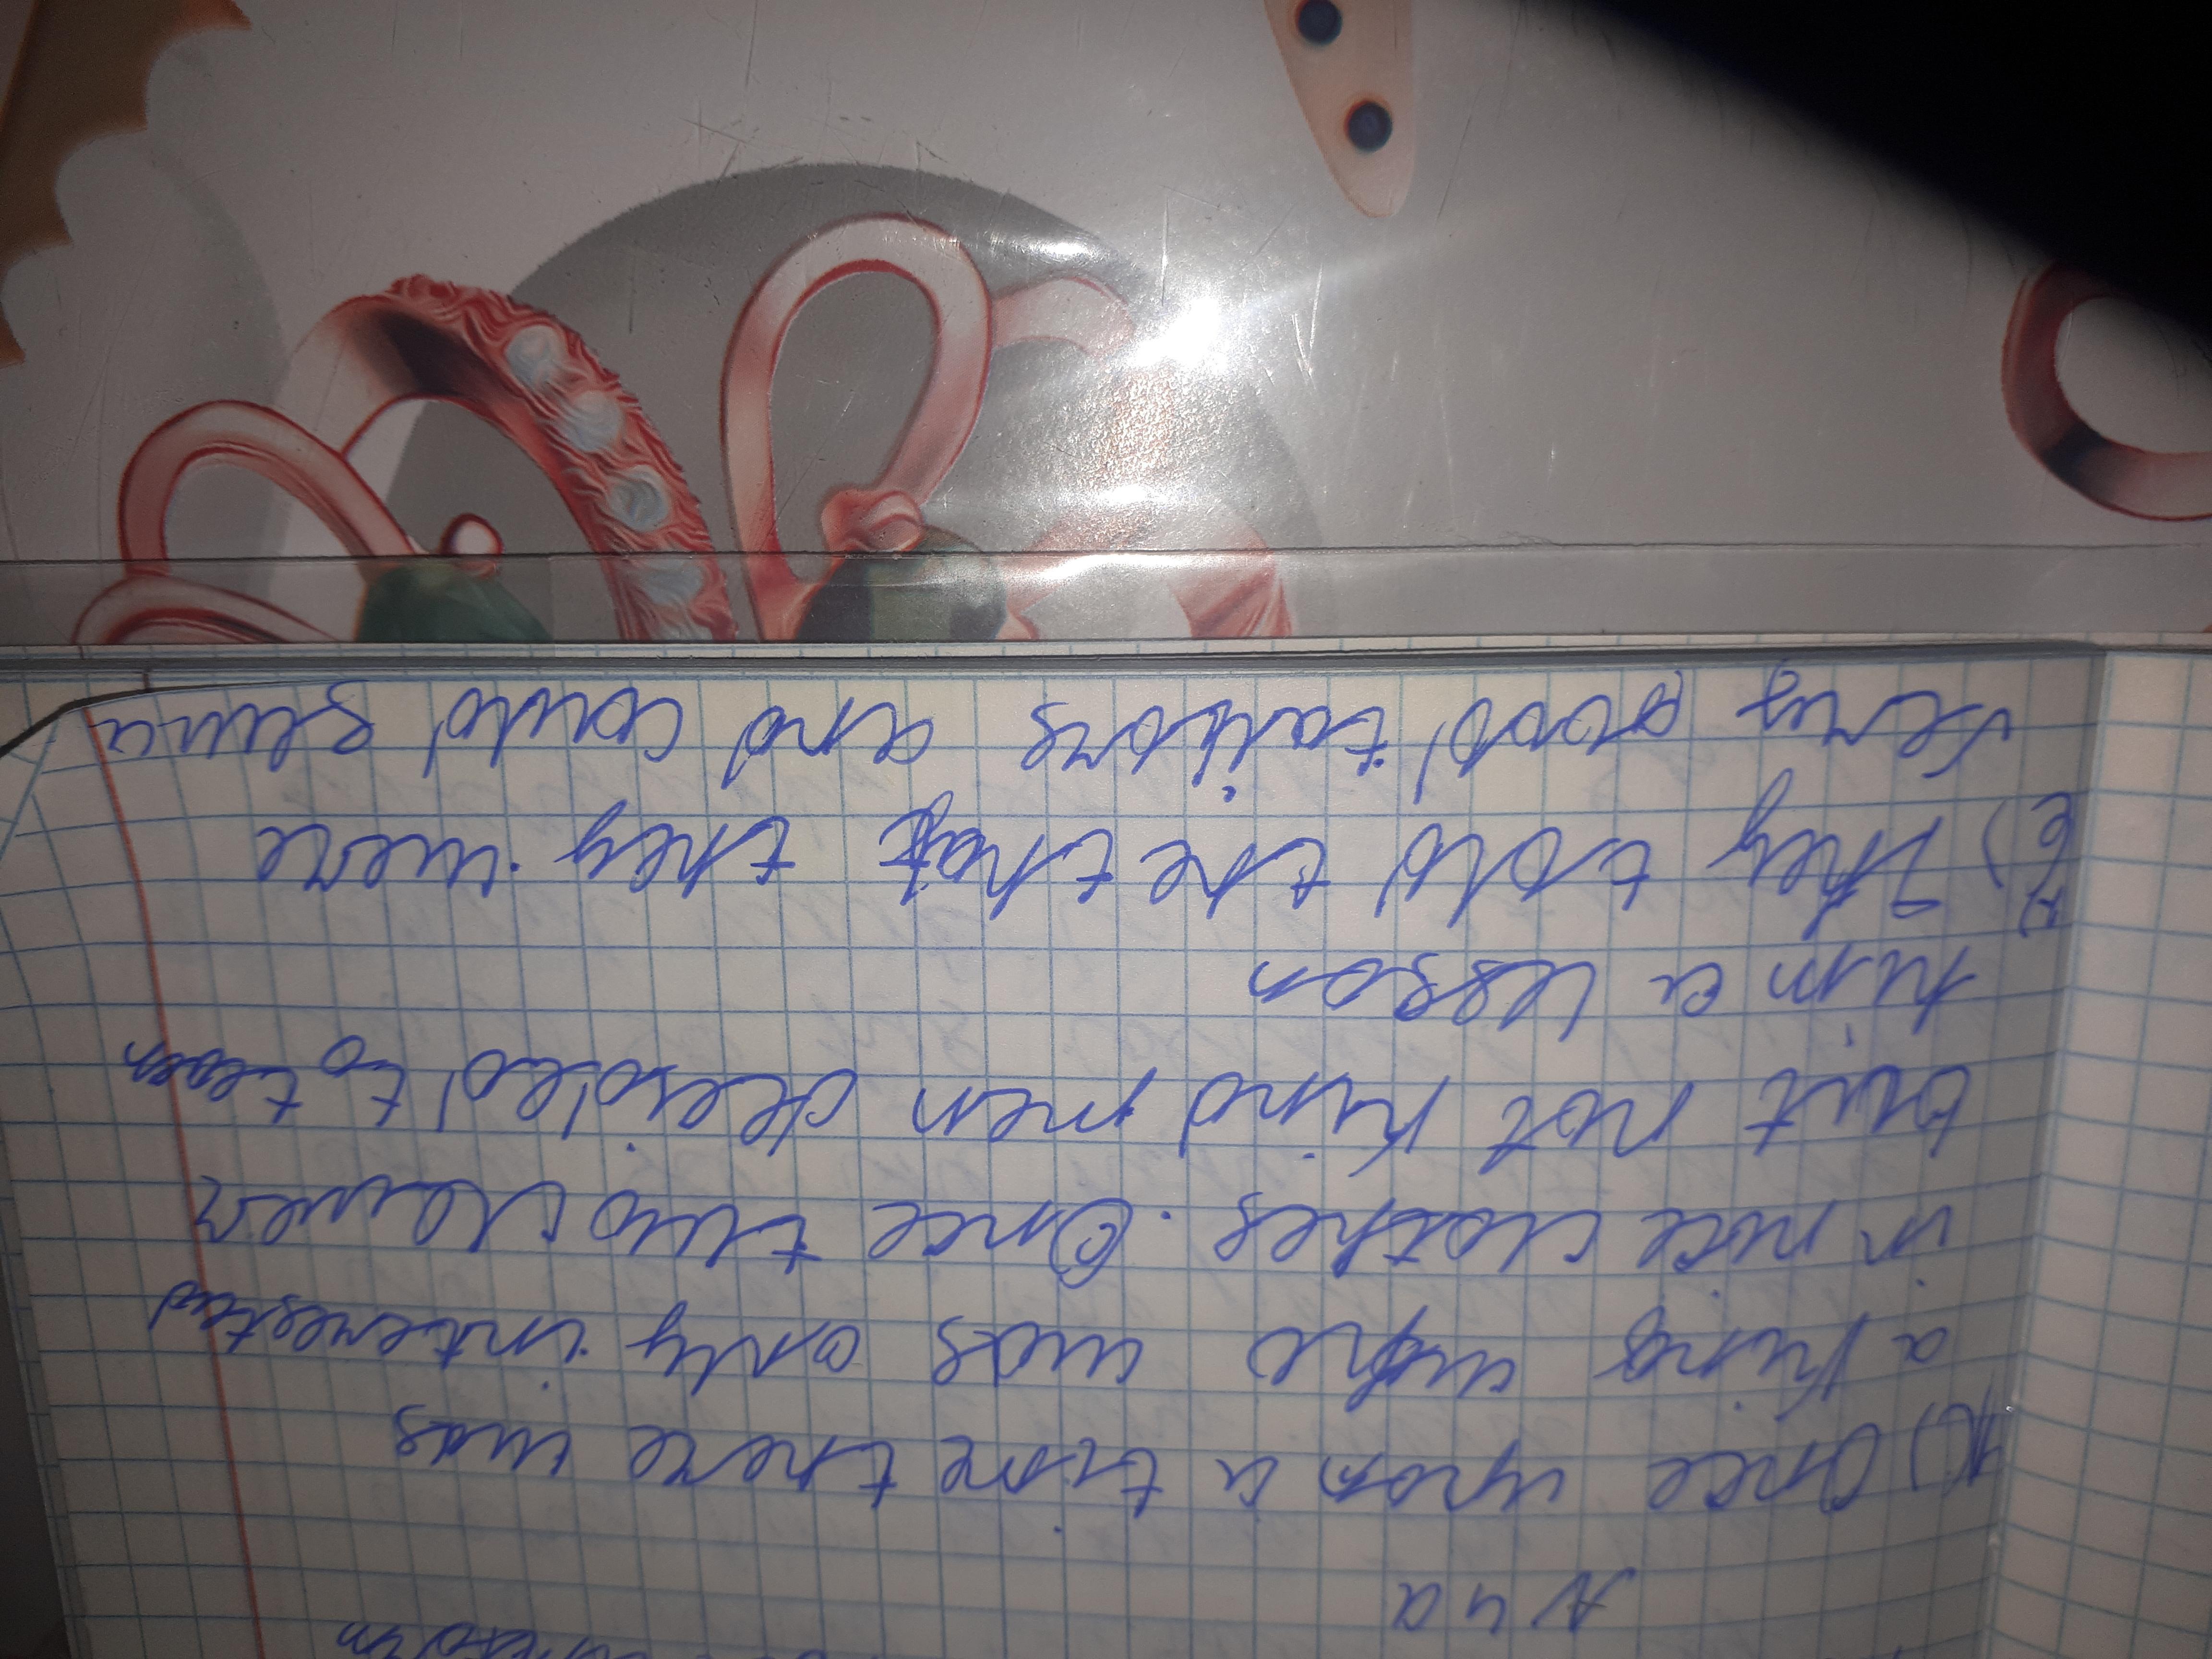 N 4 a
1) Once upon a time there was
a king who was only interested
in nice clothes. Once two clever,
but not kind men desided to
him a lesson
2) They told the that they were
very good tailors and could